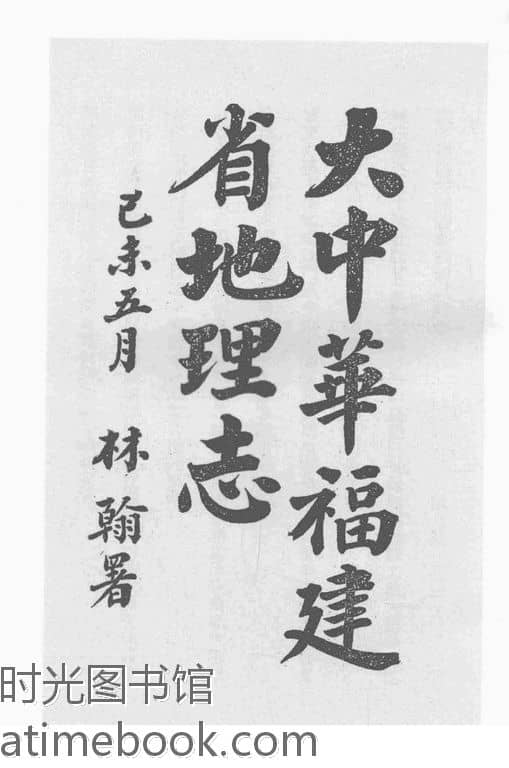 大中華福建
省地理志
己未五月 林翰署
时光图书馆
atimebook.com